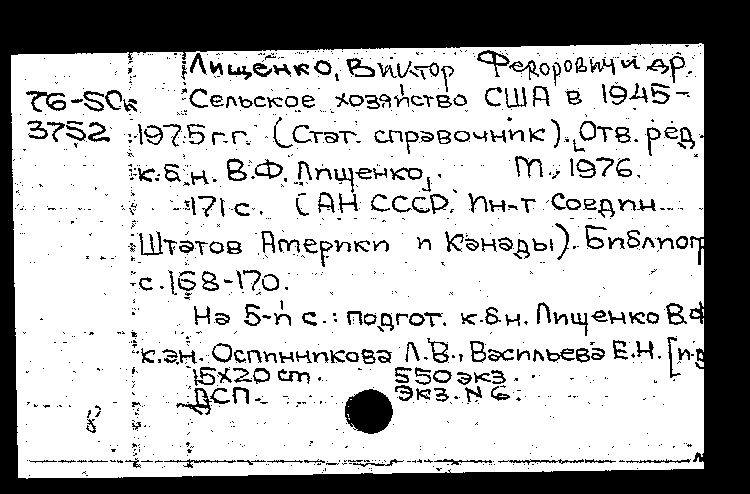 Лищенко, Виктор Федорович и др.
76-50к Сельское хозяйство США в 1945-
3752 1975 г.г. (Стат. справочник). Отв. ред.
к.б.н. В.Ф. Лищенко. М., 1976.
171 с. (АН СССР. Ин-т Соедин.
Штатов Америки и Канады). Библиог
с. 168-170.
На 5-й с.: подгот. к.б.н. Лищенко В.Ф
к.эн. Оспинникова Л.В., Васильева Е.Н. [и др
15х20 cm. 550 экз.
ДСП. Экз. N 6.